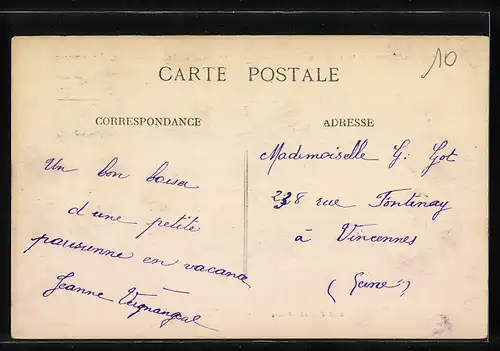 10
CARTE POSTALE
CORRESPONDANCE
ADRESSE
Un bon baiser
d'une petite
parisienne en vacance
Jeanne
Mademoiselle G. Got
238 rue Fontenay
à Vincennes
(Seine)